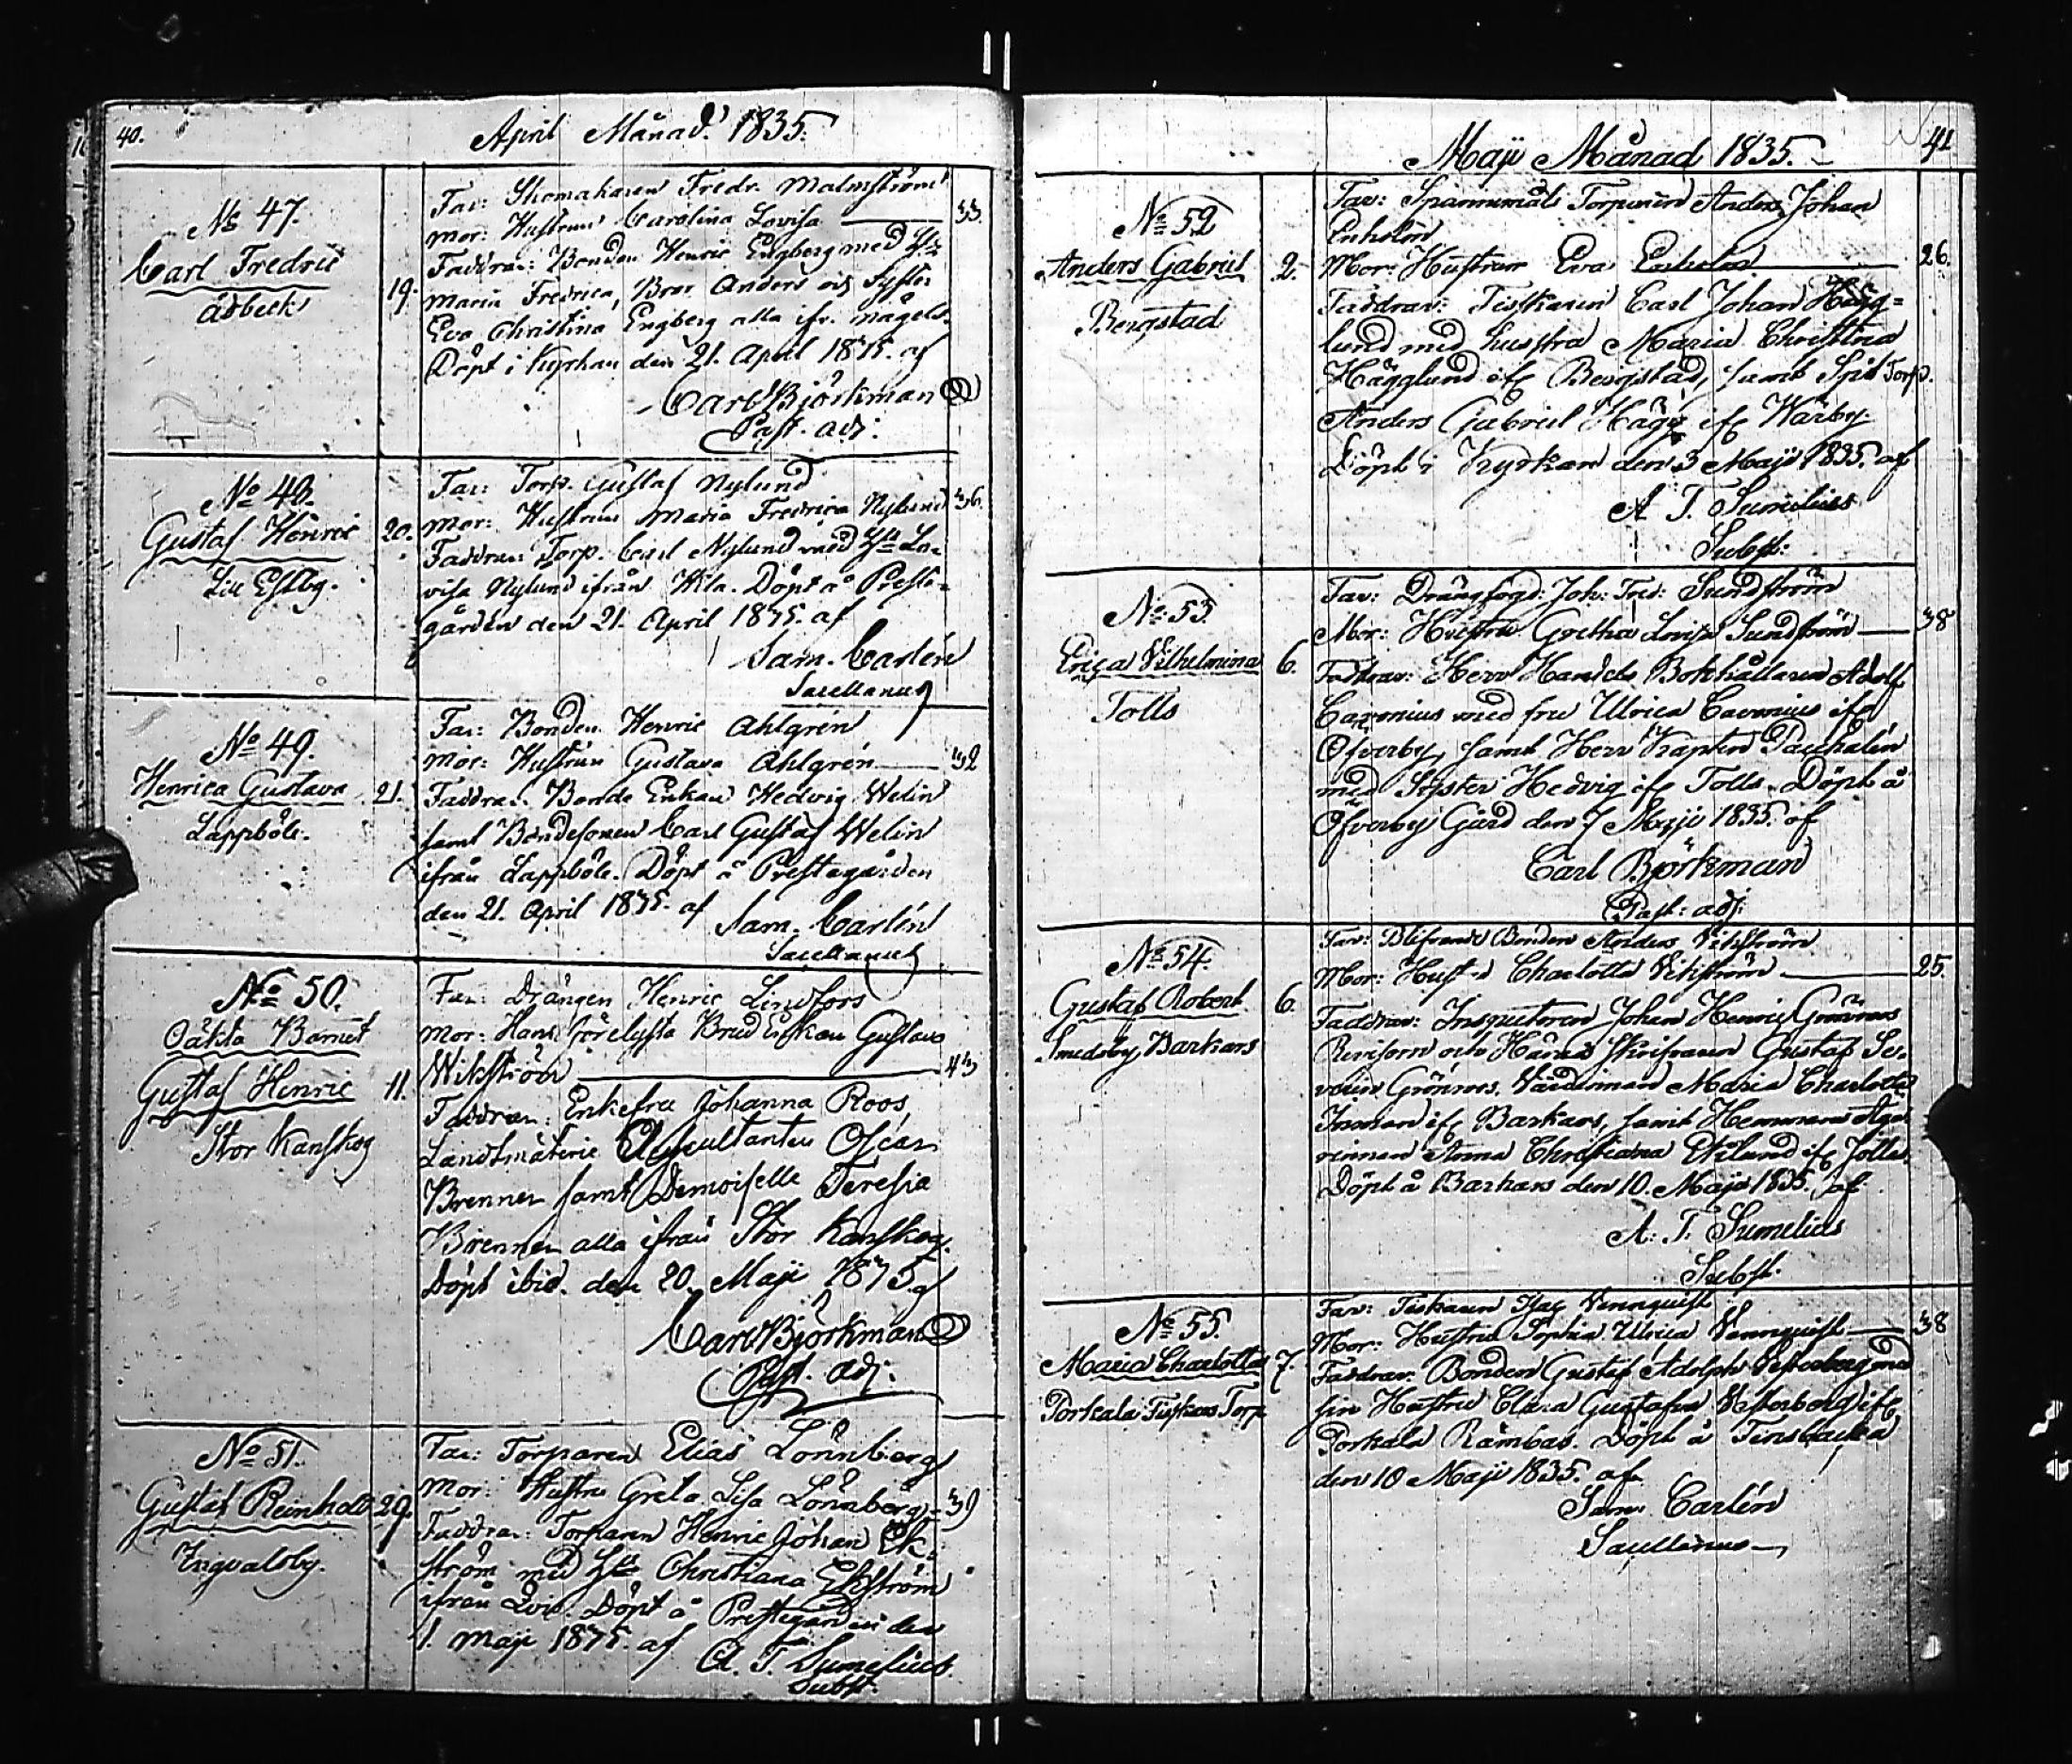 40.
April Månad. 1835.
No 47.
Carl Fredric
Åbbeck
19.
Far: Skomakaren Fredr. Malmström
Mor: Hustrun Carolina Lovisa — 33.
Faddrar: Bonden Henric Engberg med
Maria Fredrica, Bror Anders och Syster
Eva Christina Engberg alla ifr.
Döpt i Kyrkan den 21. April 1835. af
Carl Björkman
Past. adj.
No 48.
Gustaf Henric
Lill Esbg.
20.
Far: Torp. Gustaf Nylund
Mor: Hustrun Maria Fredrica Nylund 36.
Faddrar: Torp. Carl Nylund med Hu Lo-
visa Nylund ifrån Wla. Döpt å Preste-
gården den 21. April 1835. af
Sam. Carlén
Sacellanus
No 49.
Henrica Gustava
Lappböle.
21.
Far: Bonden Henric Ahlgrén
Mor: Hustrun Gustava Ahlgrén — 32
Faddrar: Bonde Enkan Hedvig Welin
samt Bondesonen Carl Gustaf Welin
ifrån Lappböle. Döpt å Prestegården
den 21. April 1835. af
Sam. Carlén
Sacellanus
No 50.
Oäkta Barnet
Gustaf Henric
Stor Kanskog
11.
Far: Drängen Henric Lindfors
Mor: Hans förelysta Brud Enkan Gustava
Wikström — 43
Faddrar: Enkefru Johanna Roos
Landtmäterie Auscultanten Oscar
Brenner samt Demoiselle Teresia
Brenner alla ifrån Stor Kanskog.
Döpt ibid. den 20. Maji 1835 af
Carl Björkman
Past. adj.
No 51.
Gustaf Reinhold
Ingvalsby.
29.
Far: Torparen Elias Lönnberg
Mor: Hustru Greta Lisa Lönnberg 39
Faddrar: Torparen Henric Johan Ek-
ström med Hu Christiana Ekström
ifrån Qvis. Döpt å Prestegården den
1. Maji 1835. af
A. T. Sumelius
Subst.
41
Maji Månad 1835.
No 52
Anders Gabriel
Bergstad
2.
Far: Spannmåls Torparen Anders Johan
Enholm
Mor: Hustrun Eva Enholm — 26.
Faddrar: Fiskaren Carl Johan Hägg-
lund med hustru Maria Christina
Hägglund ifr Bergstad, samt Torp.
Anders Gabriel Hägg ifr Wärby.
Döpt i Kyrkan den 3 Maji 1835. af
A. T. Sumelius
Subst.
No 53.
Erica Vilhelmina
Tolls
6.
Far: Drängfogd: Joh: Fred: Sundström
Mor: Hustru Gretha Lovisa Sundström — 38
Faddrar: Herr Handels Bokhållaren Adolf
Cavonius med fru Ulrica Cavonius ifr
Öfverby, samt Herr Kapten
med Syster Hedvig ifr Tolls. Döpt å
Öfverby Gård den 7 Maji 1835. af
Carl Björkman
Past: adj:
No 54.
Gustaf Robert.
Smedsby Barkars
6.
Far: Blifvande Bonden Anders Vikström
Mor: Hustru Charlotta Vikström — 25.
Faddrar: Inspectoren Johan Henric Grönroos
Revisorn och Härads Skrifvaren Gustaf Se-
verin Grönroos. Värdinnan Maria Charlotta
Inman ifr Barkars, samt Hemmans Äga-
rinnan Anna Christiana Eklund ifr Jolls.
Döpt å Barkars den 10. Maji 1835. af
A. T. Sumelius
Subst.
No 55.
Maria Charlotta
Porkala Fiskars Torp
7.
Far: Fiskaren Isac Vennquist
Mor: Hustru Sophia Ulrica Vennquist — 38
Faddrar: Bonden Gustaf Adolph Vesterberg med
sin Hustru Clara Gustafva Vesterberg ifr
Porkala Rämbas. Döpt å Finsbacka
den 10 Maji 1835. af
Sam: Carlén
Sacellanus